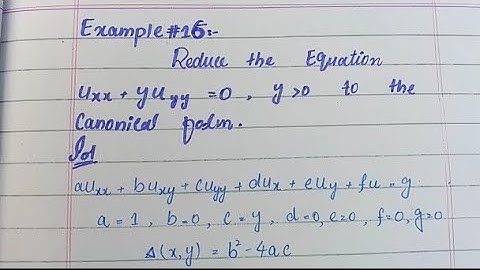 Example #16:-
Reduce the Equation
uxx + yuyy = 0 , y >0 to the
Canonical form.
Sol
auxx + buxy + cuyy + dux + euy + fu = g
a = 1 , b = 0 , c = y , d = 0, e = 0 , f = 0, g = 0
Δ(x,y) = b² - 4ac